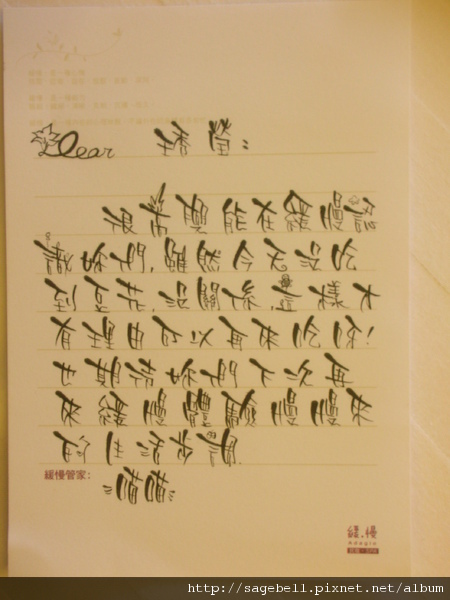 Dear 琇瑩：
很高興能在緩慢認
識妳們，雖然今天沒吃
到豆花，沒關係這樣才
有理由可以再來吃呀！
也期待妳們下次再
來緩慢體驗慢慢來
的生活步調
緩慢管家：
萌萌
緩．慢
Adagio
http://sagebell.pixnet.net/album